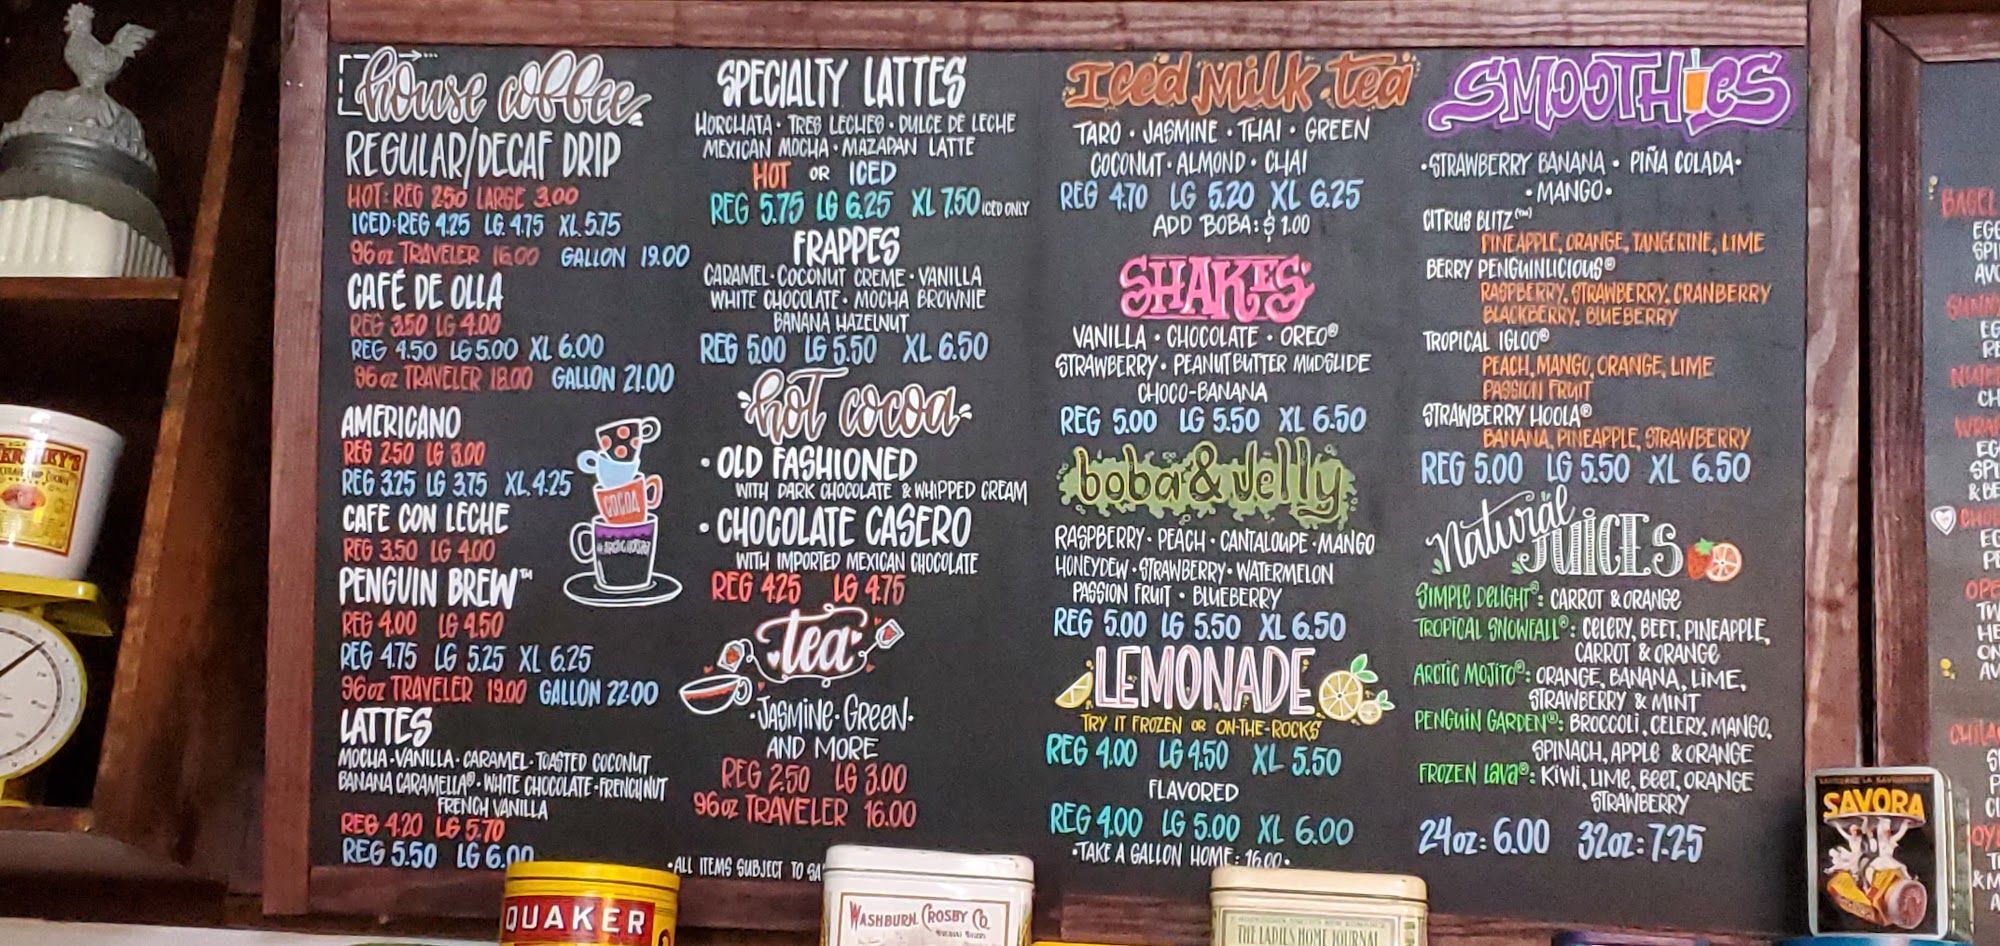 house coffee
REGULAR/DECAF DRIP
HOT: REG 2.50 LARGE 3.00
ICED: REG 4.25 LG 4.75 XL 5.75
96oz TRAVELER 16.00 GALLON 19.00
CAFÉ DE OLLA
REG 3.50 LG 4.00
REG 4.50 LG 5.00 XL 6.00
96oz TRAVELER 18.00 GALLON 21.00
AMERICANO
REG 2.50 LG 3.00
REG 3.25 LG 3.75 XL 4.25
CAFE CON LECHE
REG 3.50 LG 4.00
PENGUIN BREW™
REG 4.00 LG 4.50
REG 4.75 LG 5.25 XL 6.25
96oz TRAVELER 19.00 GALLON 22.00
LATTES
MOCHA · VANILLA · CARAMEL · TOASTED COCONUT
BANANA CARAMELLA® · WHITE CHOCOLATE · FRENCH NUT
FRENCH VANILLA
REG 4.20 LG 5.70
REG 5.50 LG 6.00
COCOA
SPECIALTY LATTES
HORCHATA · TRES LECHES · DULCE DE LECHE
MEXICAN MOCHA · MAZAPAN LATTE
HOT OR ICED
REG 5.75 LG 6.25 XL 7.50 ICED ONLY
FRAPPES
CARAMEL · COCONUT CREME · VANILLA
WHITE CHOCOLATE · MOCHA BROWNIE
BANANA HAZELNUT
REG 5.00 LG 5.50 XL 6.50
hot cocoa
· OLD FASHIONED
WITH DARK CHOCOLATE & WHIPPED CREAM
· CHOCOLATE CASERO
WITH IMPORTED MEXICAN CHOCOLATE
REG 4.25 LG 4.75
tea
· JASMINE · GREEN ·
AND MORE
REG 2.50 LG 3.00
96oz TRAVELER 16.00
· ALL ITEMS SUBJECT TO
Iced Milk tea
TARO · JASMINE · THAI · GREEN
COCONUT · ALMOND · CHAI
REG 4.70 LG 5.20 XL 6.25
ADD BOBA: $1.00
SHAKES
VANILLA · CHOCOLATE · OREO®
STRAWBERRY · PEANUT BUTTER MUDSLIDE
CHOCO-BANANA
REG 5.00 LG 5.50 XL 6.50
boba & Jelly
RASPBERRY · PEACH · CANTALOUPE · MANGO
HONEYDEW · STRAWBERRY · WATERMELON
PASSION FRUIT · BLUEBERRY
REG 5.00 LG 5.50 XL 6.50
LEMONADE
TRY IT FROZEN OR ON-THE-ROCKS
REG 4.00 LG 4.50 XL 5.50
FLAVORED
REG 4.00 LG 5.00 XL 6.00
· TAKE A GALLON HOME: 16.00 ·
SMOOTHIES
· STRAWBERRY BANANA · PIÑA COLADA ·
· MANGO ·
CITRUS BLITZ(™)
PINEAPPLE, ORANGE, TANGERINE, LIME
BERRY PENGUINLICIOUS®
RASPBERRY, STRAWBERRY, CRANBERRY
BLACKBERRY, BLUEBERRY
TROPICAL IGLOO®
PEACH, MANGO, ORANGE, LIME
PASSION FRUIT
STRAWBERRY HOOLA®
BANANA, PINEAPPLE, STRAWBERRY
REG 5.00 LG 5.50 XL 6.50
Natural JUICES
SIMPLE DELIGHT®: CARROT & ORANGE
TROPICAL SNOWFALL®: CELERY, BEET, PINEAPPLE,
CARROT & ORANGE
ARCTIC MOJITO®: ORANGE, BANANA, LIME,
STRAWBERRY & MINT
PENGUIN GARDEN®: BROCCOLI, CELERY, MANGO,
SPINACH, APPLE & ORANGE
FROZEN LAVA®: KIWI, LIME, BEET, ORANGE
STRAWBERRY
24oz: 6.00 32oz: 7.25
SAVORA
QUAKER
WASHBURN, CROSBY CO.
THE LADIES HOME JOURNAL
BAGEL